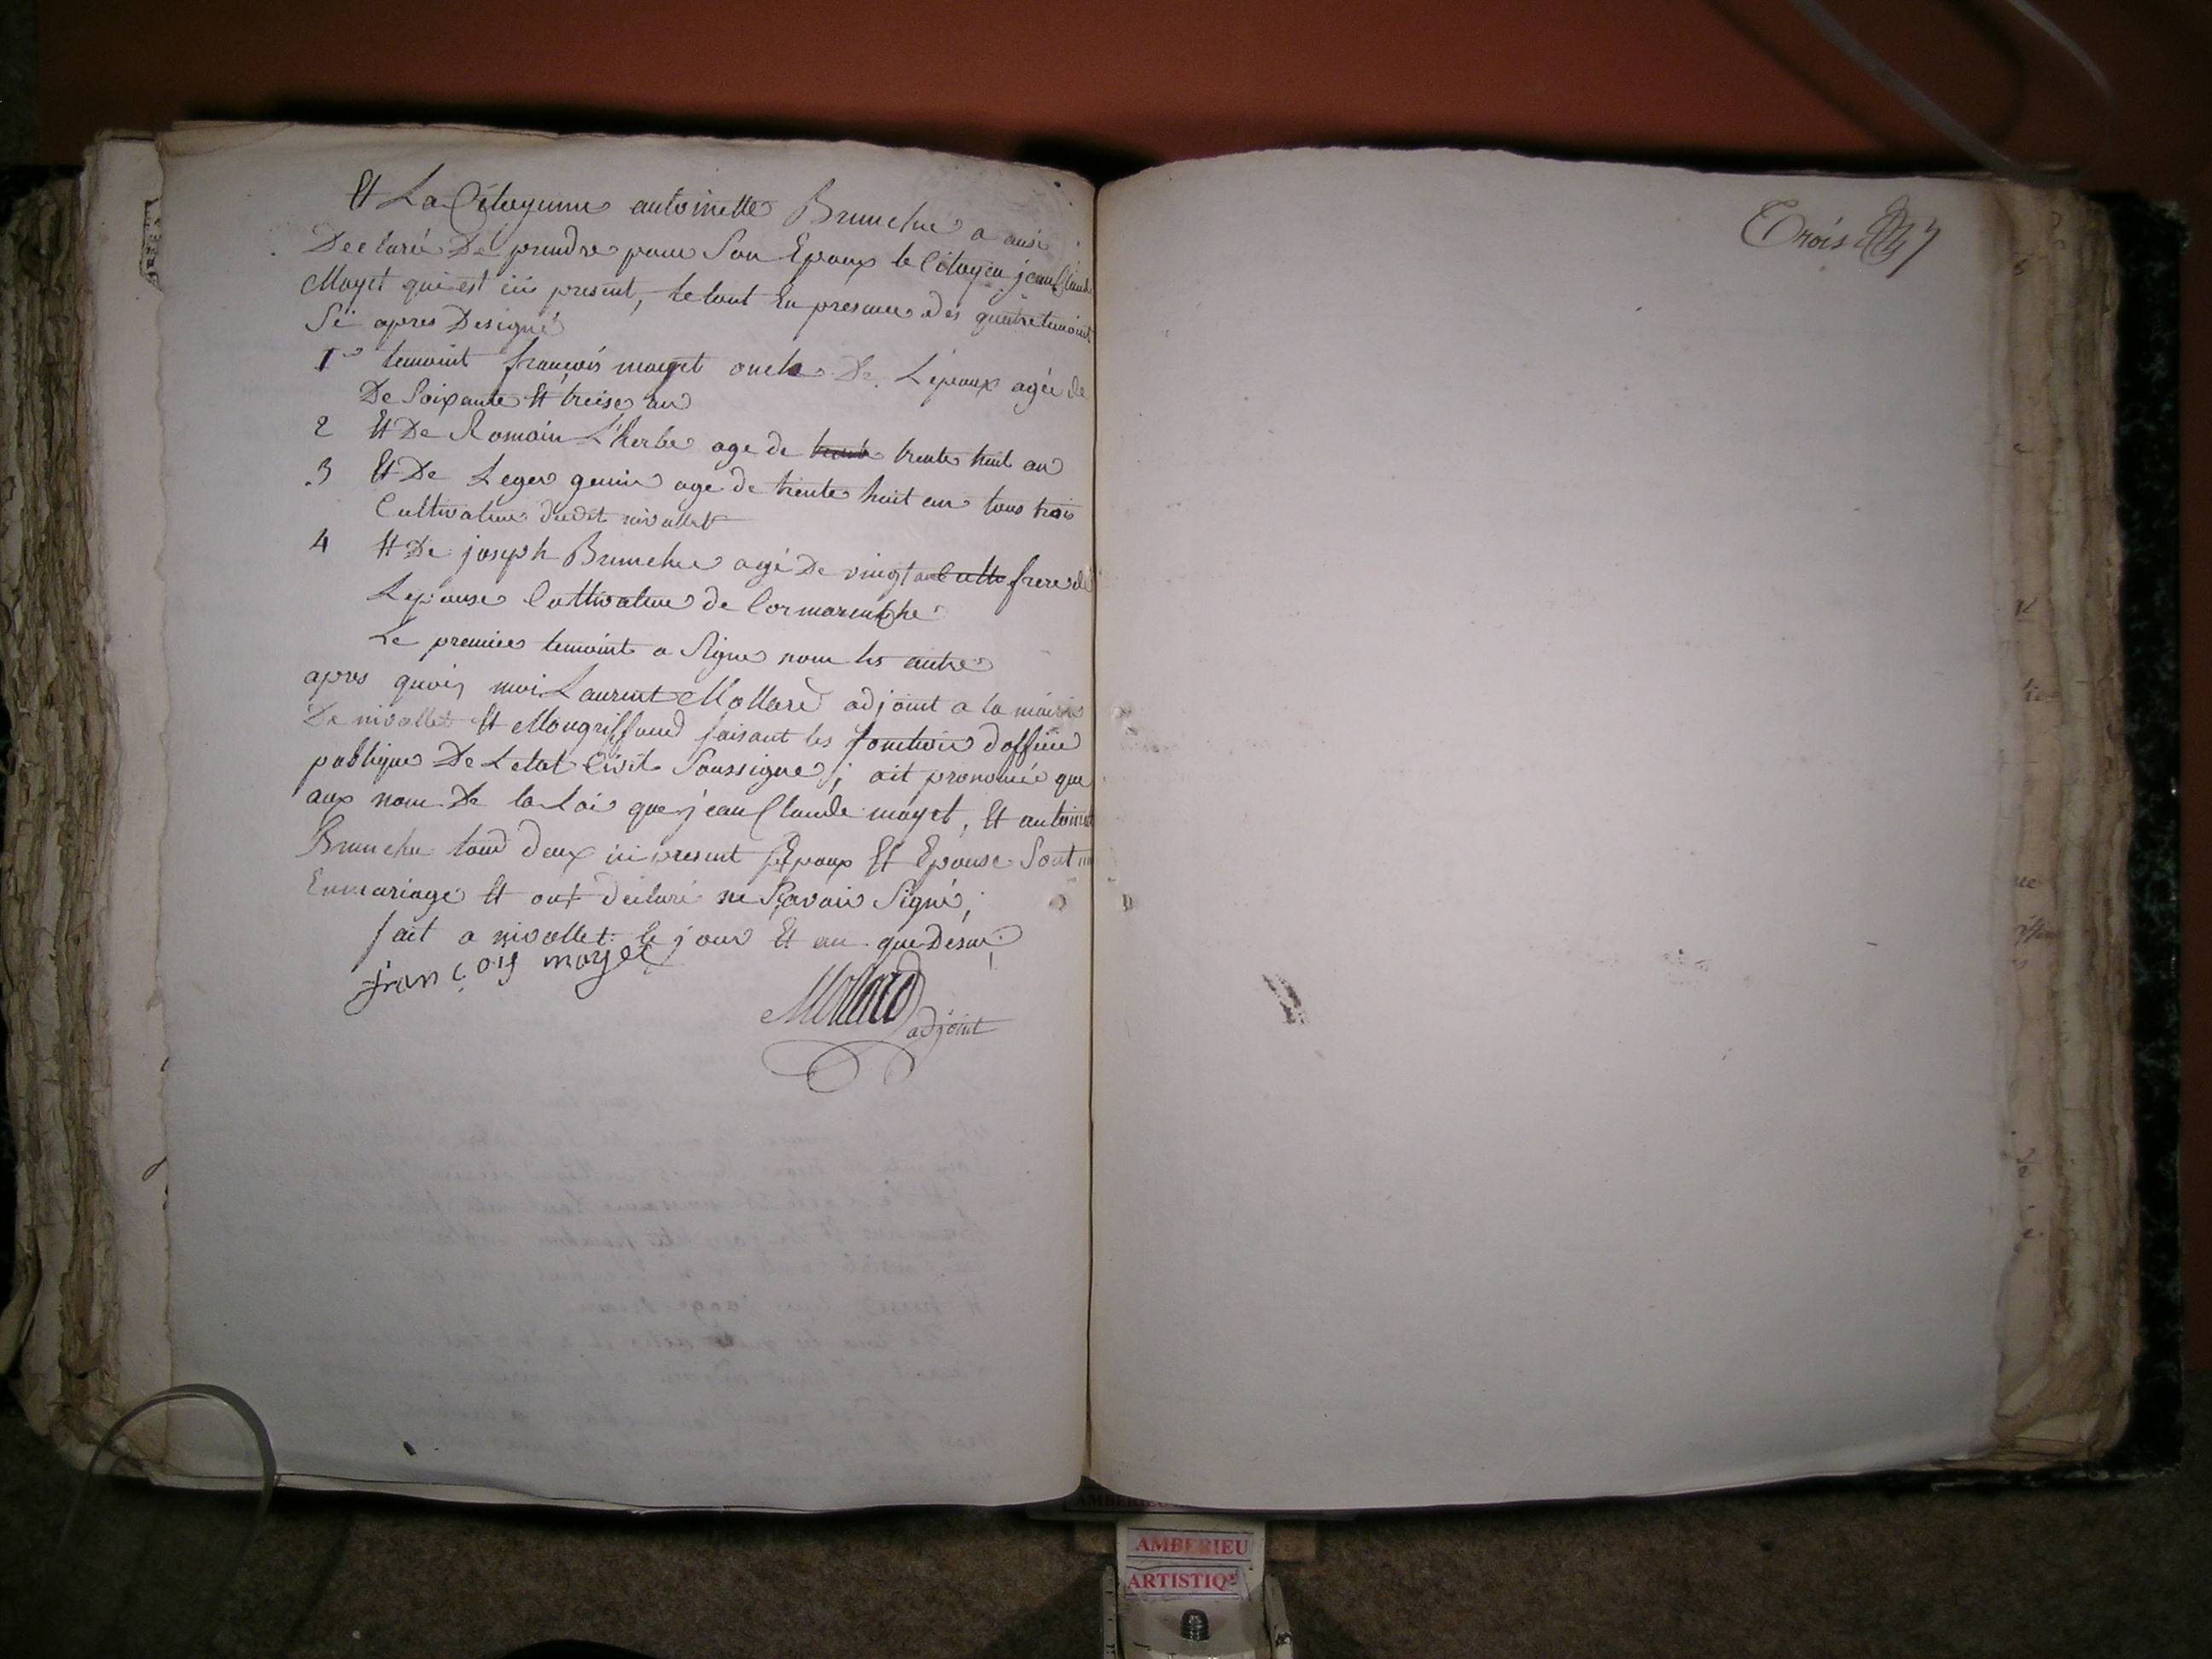 Et La Citoyenne antoinette Brunchu a ausi
Declaré De prendre pour Son Epoux le Citoyen jean Claude
Mayet qui est ici present, le tout En presence des quatre temoint
Si apres Designé
1er temoint françois mayet oncle De L'epoux agée de
De Soixante Et treise an
2 Et De Romain L'herbe age de trente huit an
3 Et De Leger genin age de trente huit an tous trois
Cultivateur dudit nivollet
4 Et De joseph Brunchu agé De vingt an frere de
Lepouse Cultivateur de Cormarenche
Le premier temoint a Signe nom les autre
apres quoi moi Laurent Mollard adjoint a la mairie
De nivollet Et Mongriffond faisant les fonction d'officie
publique De L'etat Civil Soussigne; ait prononcée que
aux nom De la Loi que jean Claude mayet, Et antoinette
Brunchu toud deux ici present Epoux Et Epouse Sont
En mariage Et ont declaré ne Sçavoir Signé;
fait a nivollet le jour Et an que Desus;
françois mayet
Mollard
adjoint
Trois
AMBERIEU
ARTISTIQ